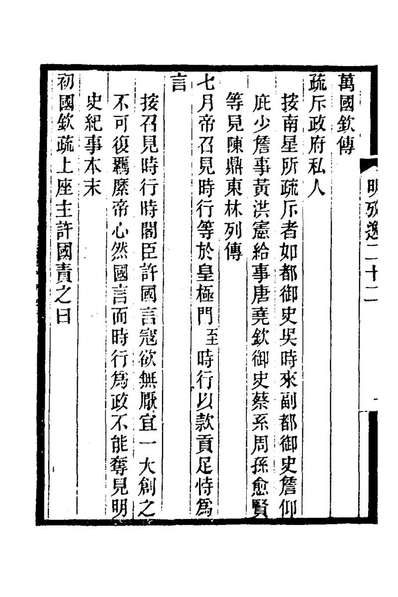 明攷證二十二
一
萬國欽傳
疏斥政府私人
按南星所疏斥者如都御史吳時來副都御史詹仰
庇少詹事黃洪憲給事唐堯欽御史蔡系周孫愈賢
等見陳鼎東林列傳
七月帝召見時行等於皇極門至時行以款貢足恃爲
言
按召見時行時閣臣許國言寇欲無厭宜一大創之
不可復羈縻帝心然國言而時行爲政不能奪見明
史紀事本末
初國欽疏上座主許國責之曰